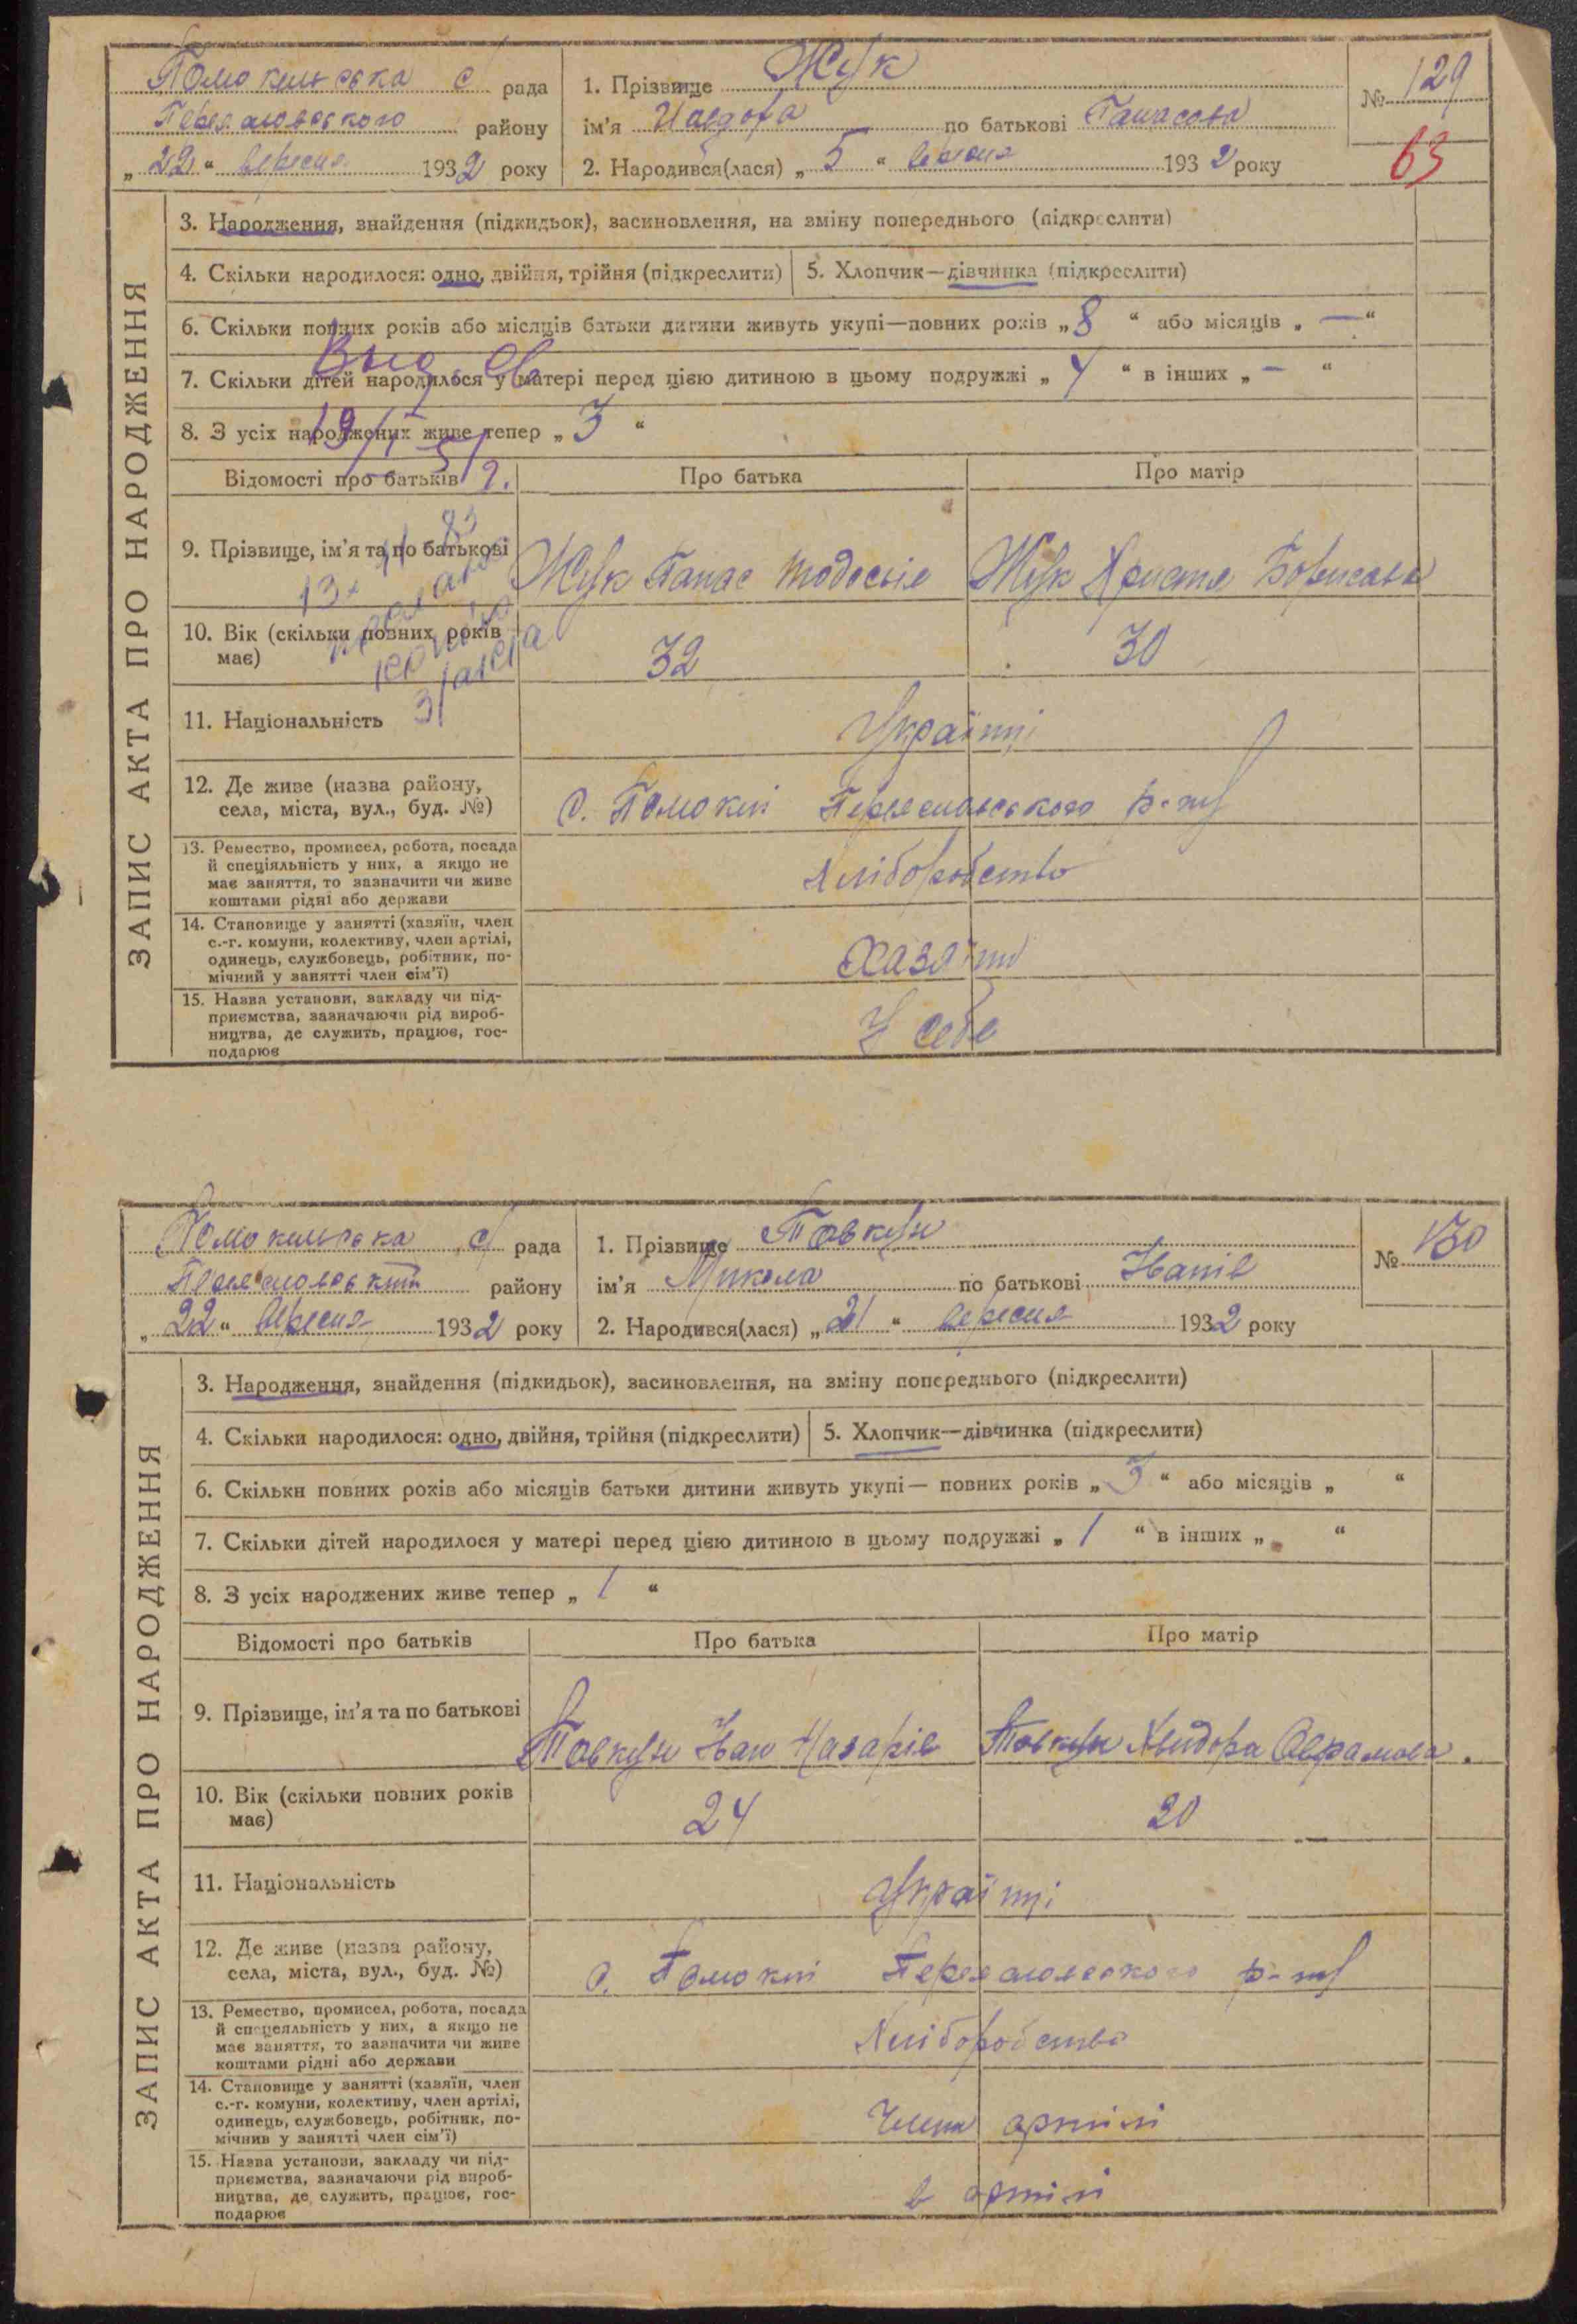 Помокельська с/рада
Переяславського району
„22“ вересня 1932 року
1. Прізвище Жук
ім'я по батькові Панасова
2. Народився(лася) „5“ вересня 1932 року
№ 129
63
ЗАПИС АКТА ПРО НАРОДЖЕННЯ
3. Народження, знайдення (підкидьок), засиновлення, на зміну попереднього (підкреслити)
4. Скільки народилося: одно, двійня, трійня (підкреслити)
5. Хлопчик—дівчинка (підкреслити)
6. Скільки повних років або місяців батьки дитини живуть укупі—повних років „8“ або місяців „—“
7. Скільки дітей народилося у матері перед цією дитиною в цьому подружжі „4“ в інших „—“
8. З усіх народжених живе тепер „3“
Відомості про батьків
Про батька
Про матір
9. Прізвище, ім'я та по батькові
Жук Панас Тодосьів
Жук Христя Борисова
10. Вік (скільки повних років
має)
32
30
11. Національність
Українці
12. Де живе (назва району,
села, міста, вул., буд. №)
с. Помоклі Переяславського р-ну
13. Ремество, промисел, робота, посада
й спеціяльність у них, а якщо не
має заняття, то зазначити чи живе
коштами рідні або держави
Хліборобство
14. Становище у занятті (хазяїн, член
с.-г. комуни, колективу, член артілі,
одинець, службовець, робітник, по-
мічний у занятті член сім'ї)
Хазяїни
15. Назва установи, закладу чи під-
приємства, зазначаючи рід вироб-
ництва, де служить, працює, гос-
подарює
У себе
Помокельська с/рада
району
„22“ вересня 1932 року
1. Прізвище Товкун
ім'я Микола по батькові Іванів
2. Народився(лася) „21“ вересня 1932 року
№ 130
ЗАПИС АКТА ПРО НАРОДЖЕННЯ
3. Народження, знайдення (підкидьок), засиновлення, на зміну попереднього (підкреслити)
4. Скільки народилося: одно, двійня, трійня (підкреслити)
5. Хлопчик—дівчинка (підкреслити)
6. Скільки повних років або місяців батьки дитини живуть укупі— повних років „3“ або місяців „ “
7. Скільки дітей народилося у матері перед цією дитиною в цьому подружжі „1“ в інших „ “
8. З усіх народжених живе тепер „1“
Відомості про батьків
Про батька
Про матір
9. Прізвище, ім'я та по батькові
Товкун Іван Назарів
Товкун Аврамова
10. Вік (скільки повних років
має)
24
20
11. Національність
Українці
12. Де живе (назва району,
села, міста, вул., буд. №)
с. Помоклі Переяславського р-ну
13. Ремество, промисел, робота, посада
й спецеяльність у них, а якщо не
має заняття, то зазначити чи живе
коштами рідні або держави
Хліборобство
14. Становище у занятті (хазяїн, член
с.-г. комуни, колективу, член артілі,
одинець, службовець, робітник, по-
мічнив у занятті член сім'ї)
Члени артілі
15. Назва установи, закладу чи під-
приємства, зазначаючи рід вироб-
ництва, де служить, працює, гос-
подарює
в артілі